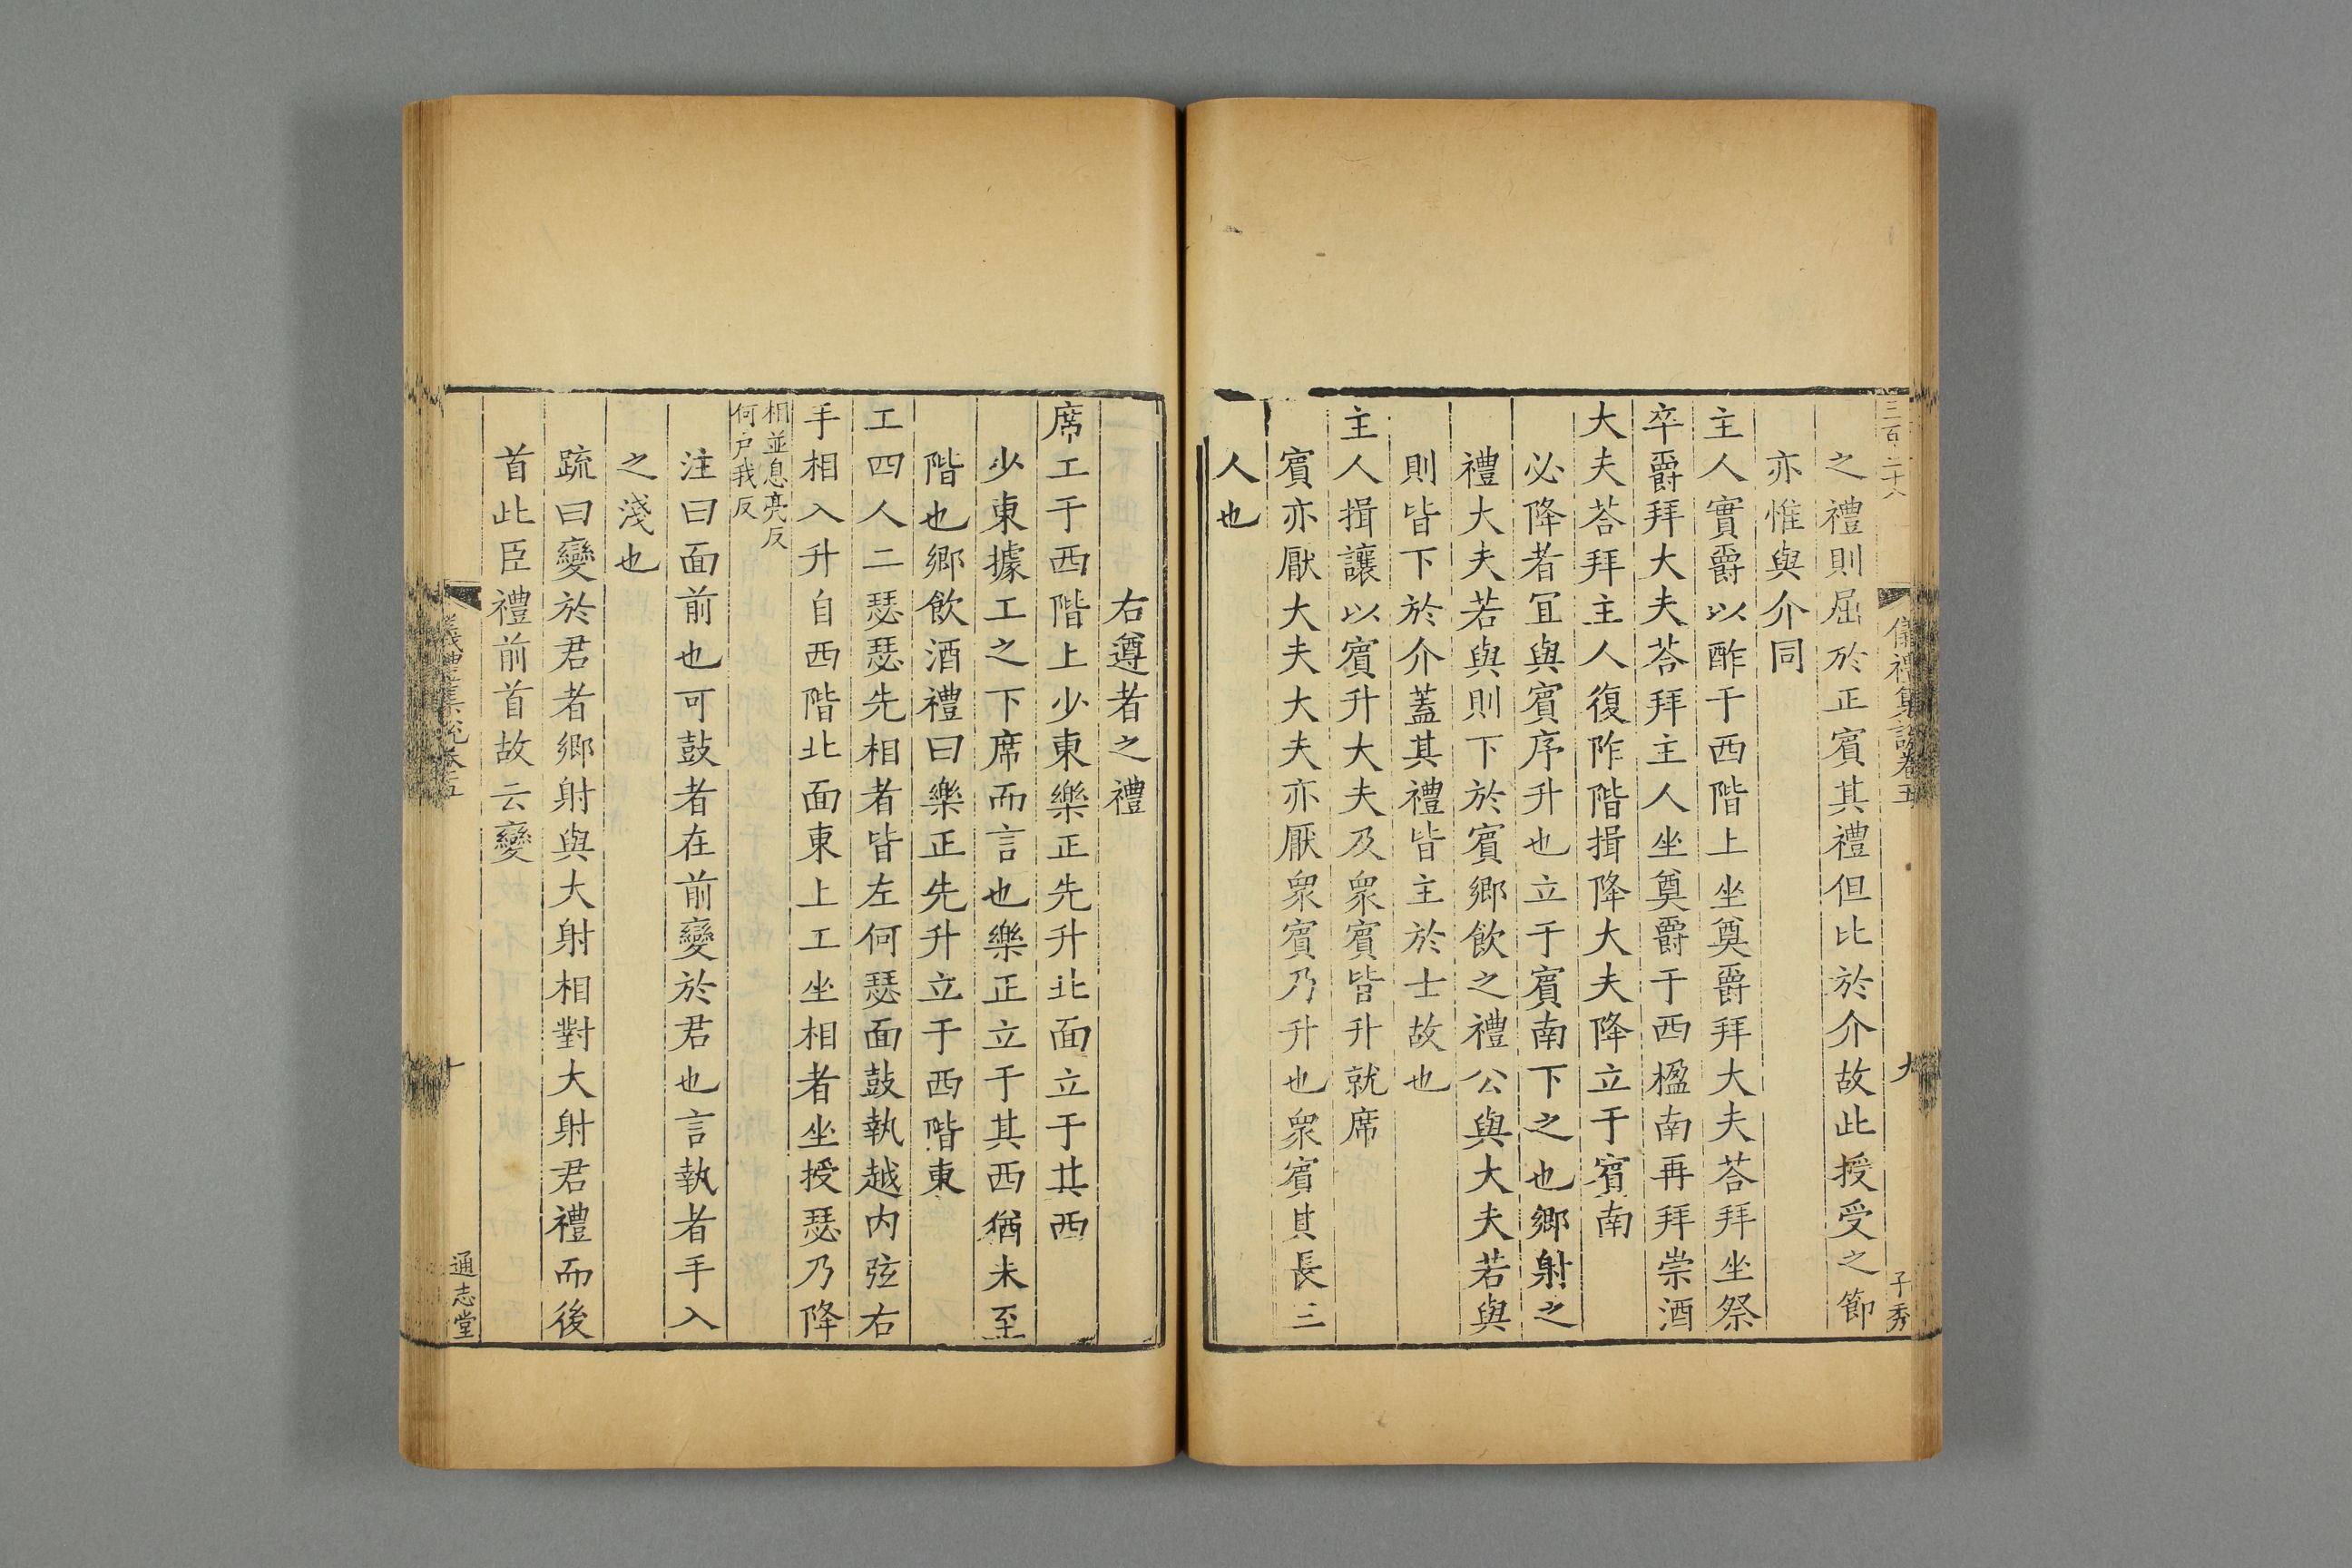 之禮則屈於正賓其禮但比於介故此授受之節
亦惟與介同
主人實爵以酢于西階上坐奠爵拜大夫荅拜坐祭
卒爵拜大夫荅拜主人坐奠爵于西楹南再拜崇酒
大夫荅拜主人復阼階揖降大夫降立于賓南
必降者冝與賓序升也立于賓南下之也鄉射之
禮大夫若與則下於賓鄉飲之禮公與大夫若與
則皆下於介蓋其禮皆主於士故也
主人揖讓以賓升大夫及衆賓皆升就席
賓亦厭大夫大夫亦厭衆賓乃升也衆賓其長三
人也
儀禮集說卷五
九
子秀
右遵者之禮
席工于西階上少東樂正先升北面立于其西
少東據工之下席而言也樂正立于其西猶未至
階也鄉飲酒禮曰樂正先升立于西階東
工四人二瑟瑟先相者皆左何瑟面鼓執越内弦右
手相入升自西階北面東上工坐相者坐授瑟乃降
相並息亮反
何戶我反
注曰面前也可鼓者在前變於君也言執者手入
之淺也
疏曰變於君者鄉射與大射相對大射君禮而後
首此臣禮前首故云變
儀禮集說卷五
十
通志堂